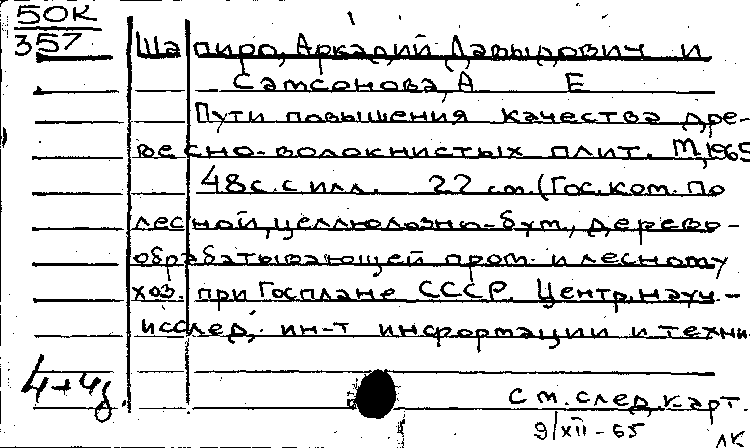 50К
357
Шапиро, Аркадий Давыдович и
Самсонова, А Е
Пути повышения качества дре-
весно-волокнистых плит. М, 1965
48 с. с илл. 22 см. (Гос. ком. по
лесной, целлюлозно-бум., дерево-
обрабатывающей пром. и лесному
хоз. при Госплане СССР. Центр. науч.-
исслед. ин-т информации и техни-
4+4д.
см. след. карт.
9/XII-65